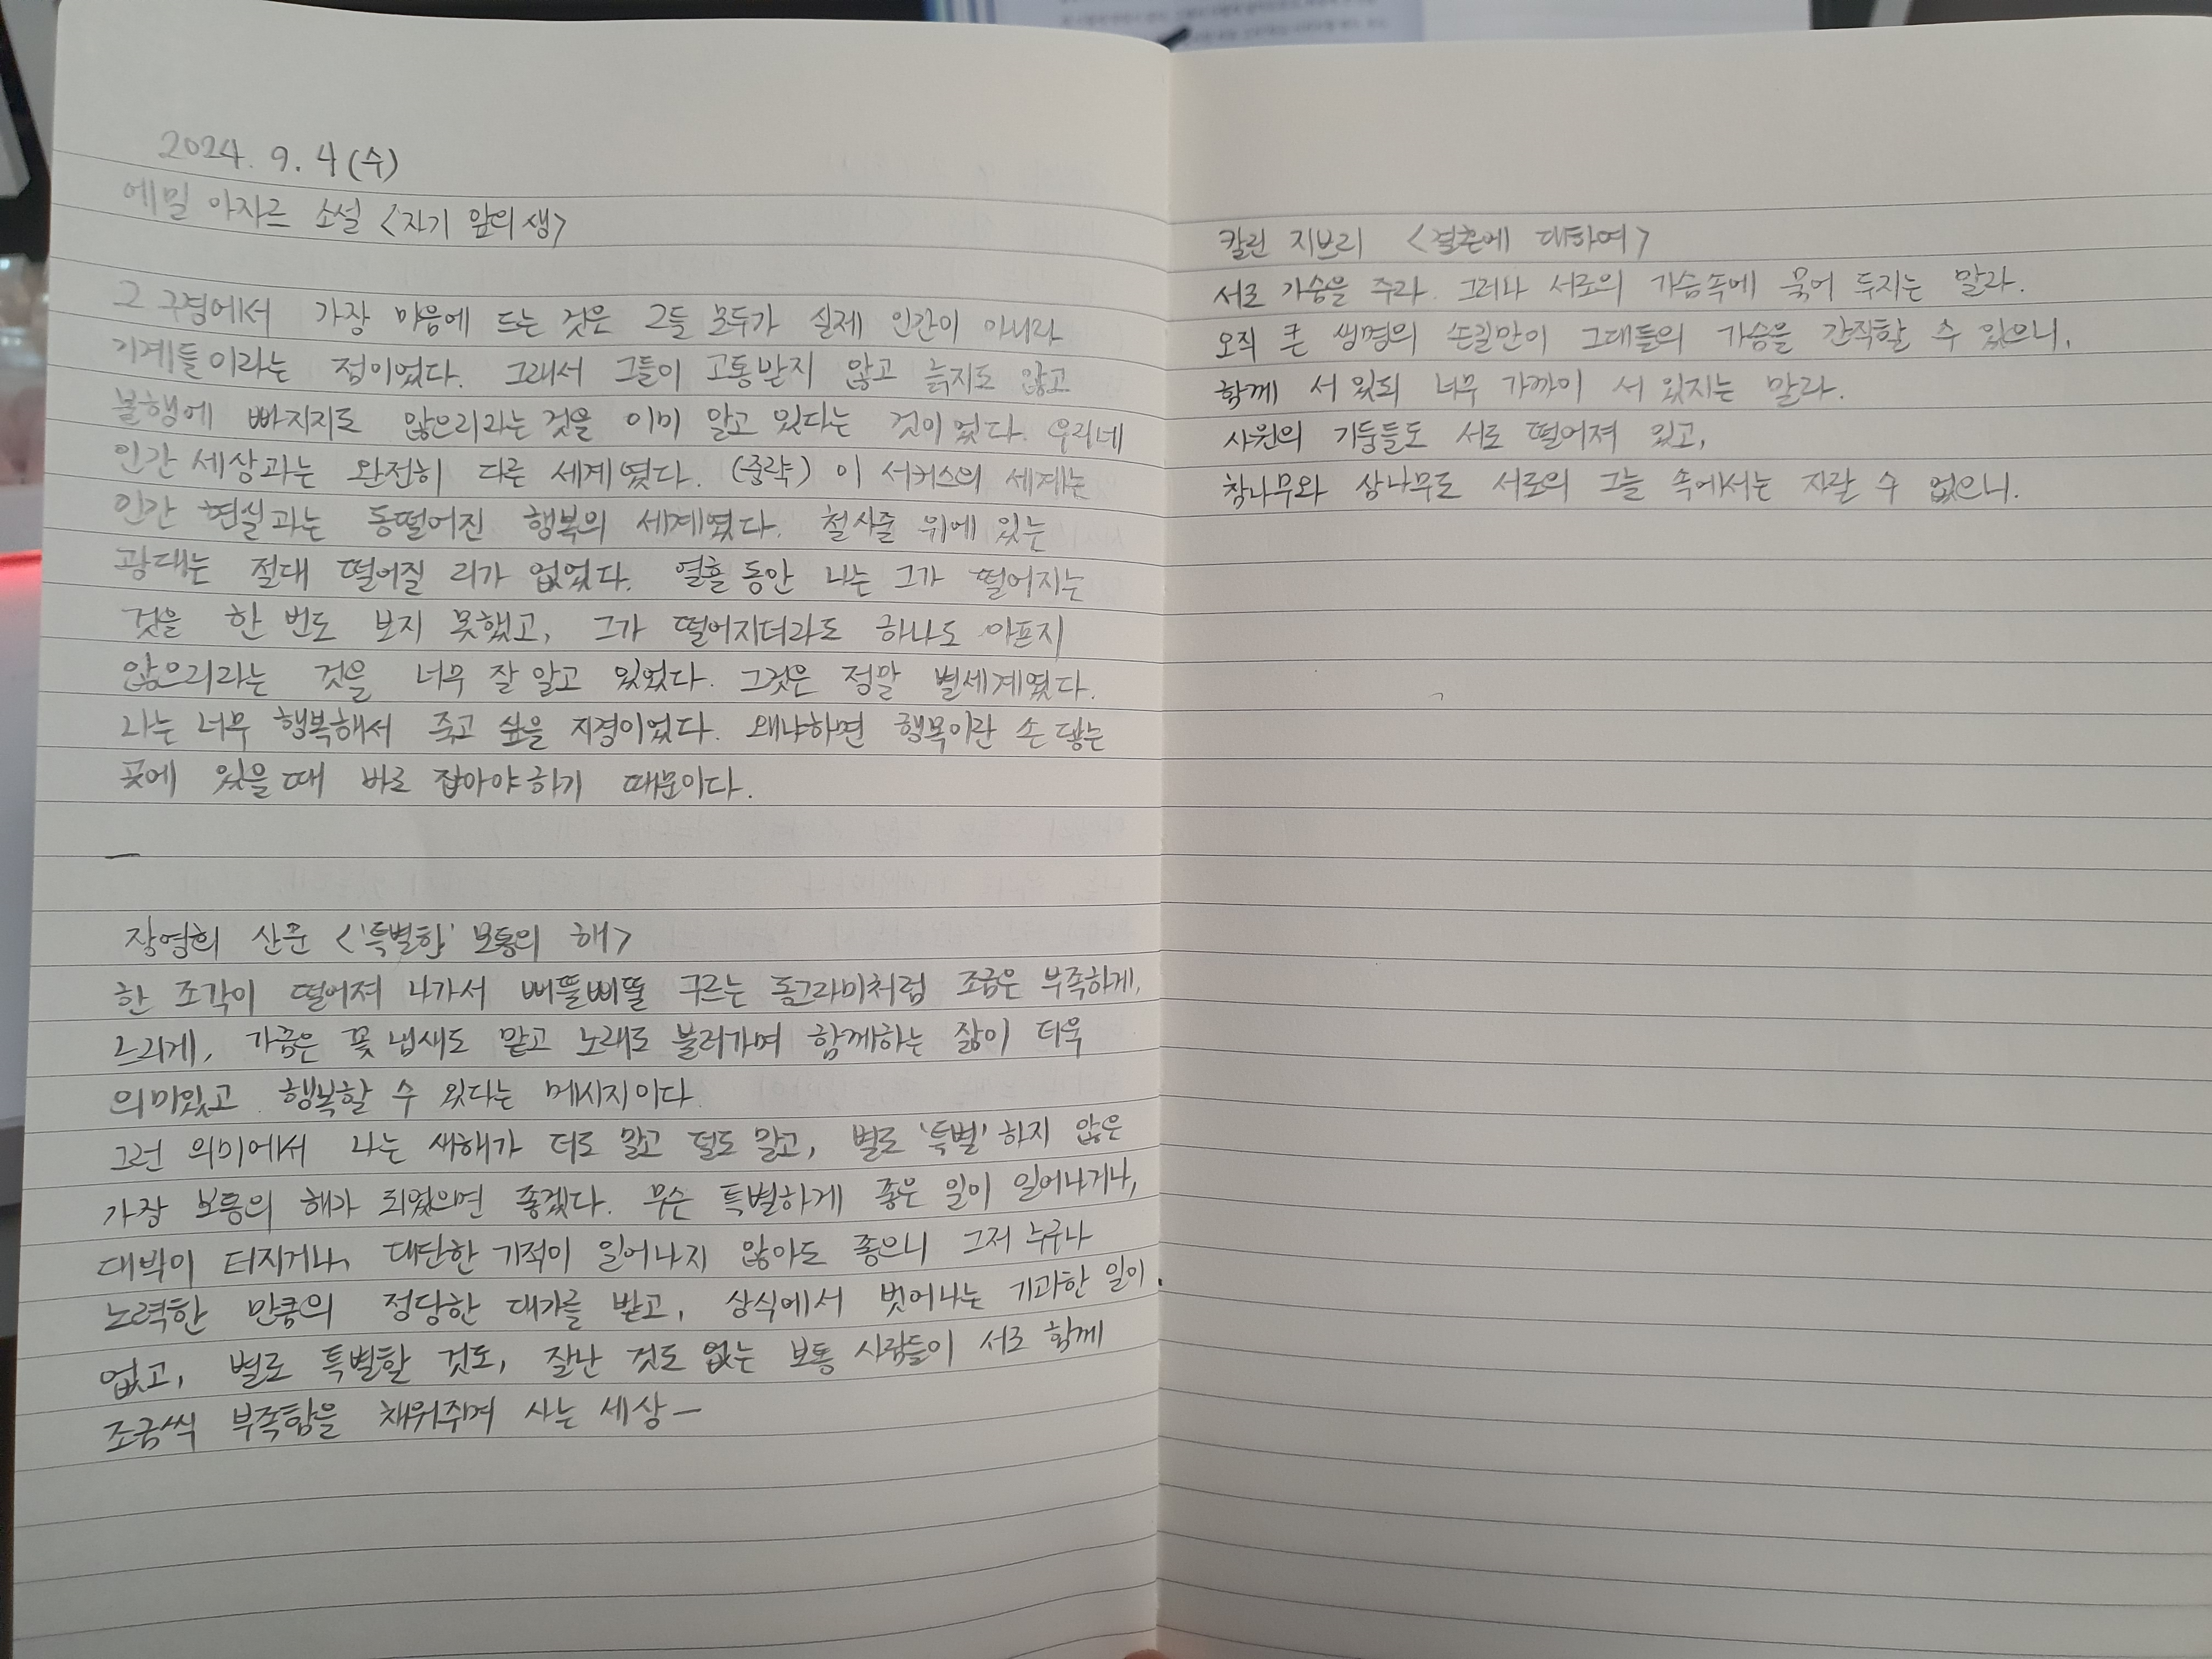 2024. 9. 4 (수)
에밀 아자르 소설 <자기 앞의 생>
그 구경에서 가장 마음에 드는 것은 그들 모두가 실제 인간이 아니라
기계들이라는 점이었다. 그래서 그들이 고통받지 않고 늙지도 않고
불행에 빠지지도 않으리라는 것을 이미 알고 있다는 것이었다. 우리네
인간 세상과는 완전히 다른 세계였다. (중략) 이 서커스의 세계는
인간 현실과는 동떨어진 행복의 세계였다. 철사줄 위에 있는
광대는 절대 떨어질 리가 없었다. 열흘 동안 나는 그가 떨어지는
것을 한 번도 보지 못했고, 그가 떨어지더라도 하나도 아프지
않으리라는 것을 너무 잘 알고 있었다. 그것은 정말 별세계였다.
나는 너무 행복해서 죽고 싶을 지경이었다. 왜냐하면 행복이란 손 닿는
곳에 있을 때 바로 잡아야 하기 때문이다.
—
장영희 산문 <'특별한' 보통의 해>
한 조각이 떨어져 나가서 삐뚤삐뚤 구르는 동그라미처럼 조금은 부족하게,
느리게, 가끔은 꽃 냄새도 맡고 노래도 불러가며 함께하는 삶이 더욱
의미있고 행복할 수 있다는 메시지이다.
그런 의미에서 나는 새해가 더도 말고 덜도 말고, 별로 '특별'하지 않은
가장 보통의 해가 되었으면 좋겠다. 무슨 특별하게 좋은 일이 일어나거나,
대박이 터지거나, 대단한 기적이 일어나지 않아도 좋으니 그저 누구나
노력한 만큼의 정당한 대가를 받고, 상식에서 벗어나는 기괴한 일이
없고, 별로 특별할 것도, 잘난 것도 없는 보통 사람들이 서로 함께
조금씩 부족함을 채워주며 사는 세상 —
칼린 지브리 <결혼에 대하여>
서로 가슴을 주라. 그러나 서로의 가슴속에 묶어 두지는 말라.
오직 큰 생명의 손길만이 그대들의 가슴을 간직할 수 있으니.
함께 서 있되 너무 가까이 서 있지는 말라.
사원의 기둥들도 서로 떨어져 있고,
참나무와 삼나무도 서로의 그늘 속에서는 자랄 수 없으니.